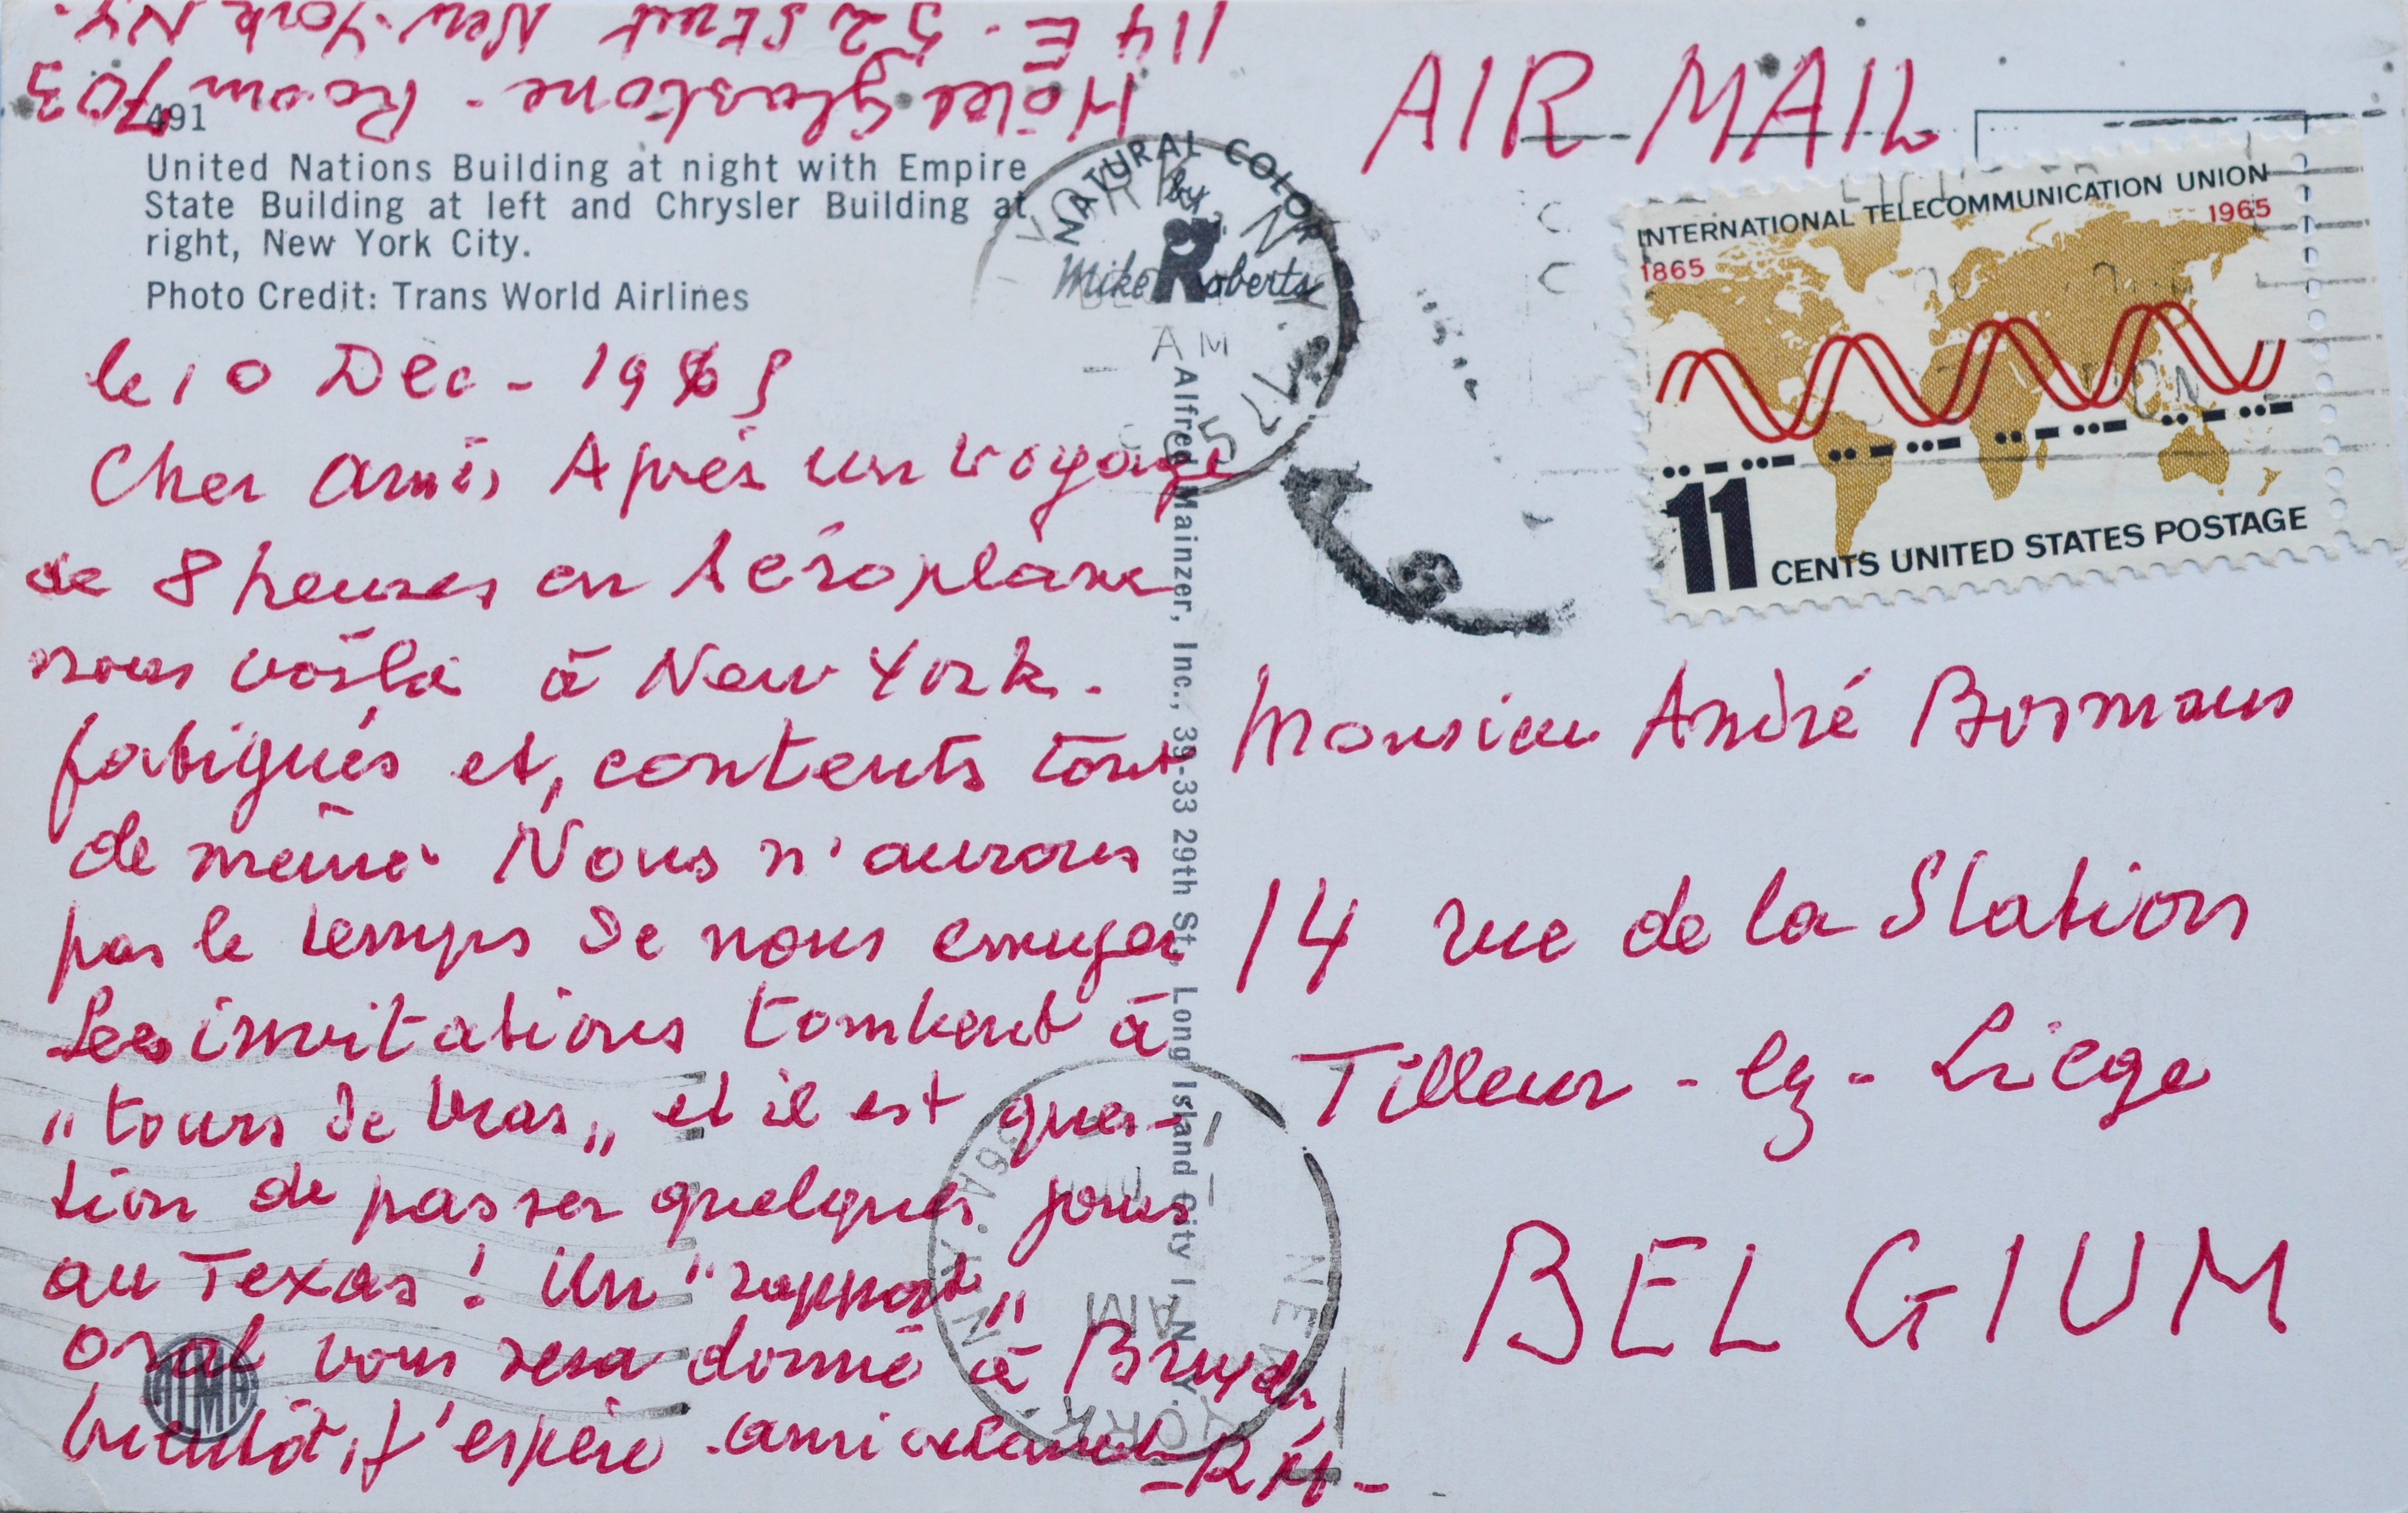 Hôtel Glastone - Room 703
114 E. 52 Street New-York NY.
491
United Nations Building at night with Empire
State Building at left and Chrysler Building at
right, New York City.
Photo Credit: Trans World Airlines
NATURAL COLOR
by
Mike Roberts
Alfred Mainzer, Inc., 39-33 29th St., Long Island City 1, N.Y.
AIR MAIL
INTERNATIONAL TELECOMMUNICATION UNION
1865
1965
11 CENTS UNITED STATES POSTAGE
AM
le 10 Dec - 1965
Cher amis, Après un voyage
de 8 heures en Aéroplane
nous voilà à New York.
fatigués et, contents tout
de même. Nous n'aurons
pas le temps de nous ennuyer
Les invitations tombent à
"tours de bras" et il est ques-
tion de passer quelques jours
au Texas! Un "rapport"
oral vous sera donné à Brux.
bientôt, j'espère. amicalement
- RM -
Monsieur André Bosmans
14 rue de la Station
Tilleur - lez - Liège
BELGIUM
NEW YORK, N.Y.
AM